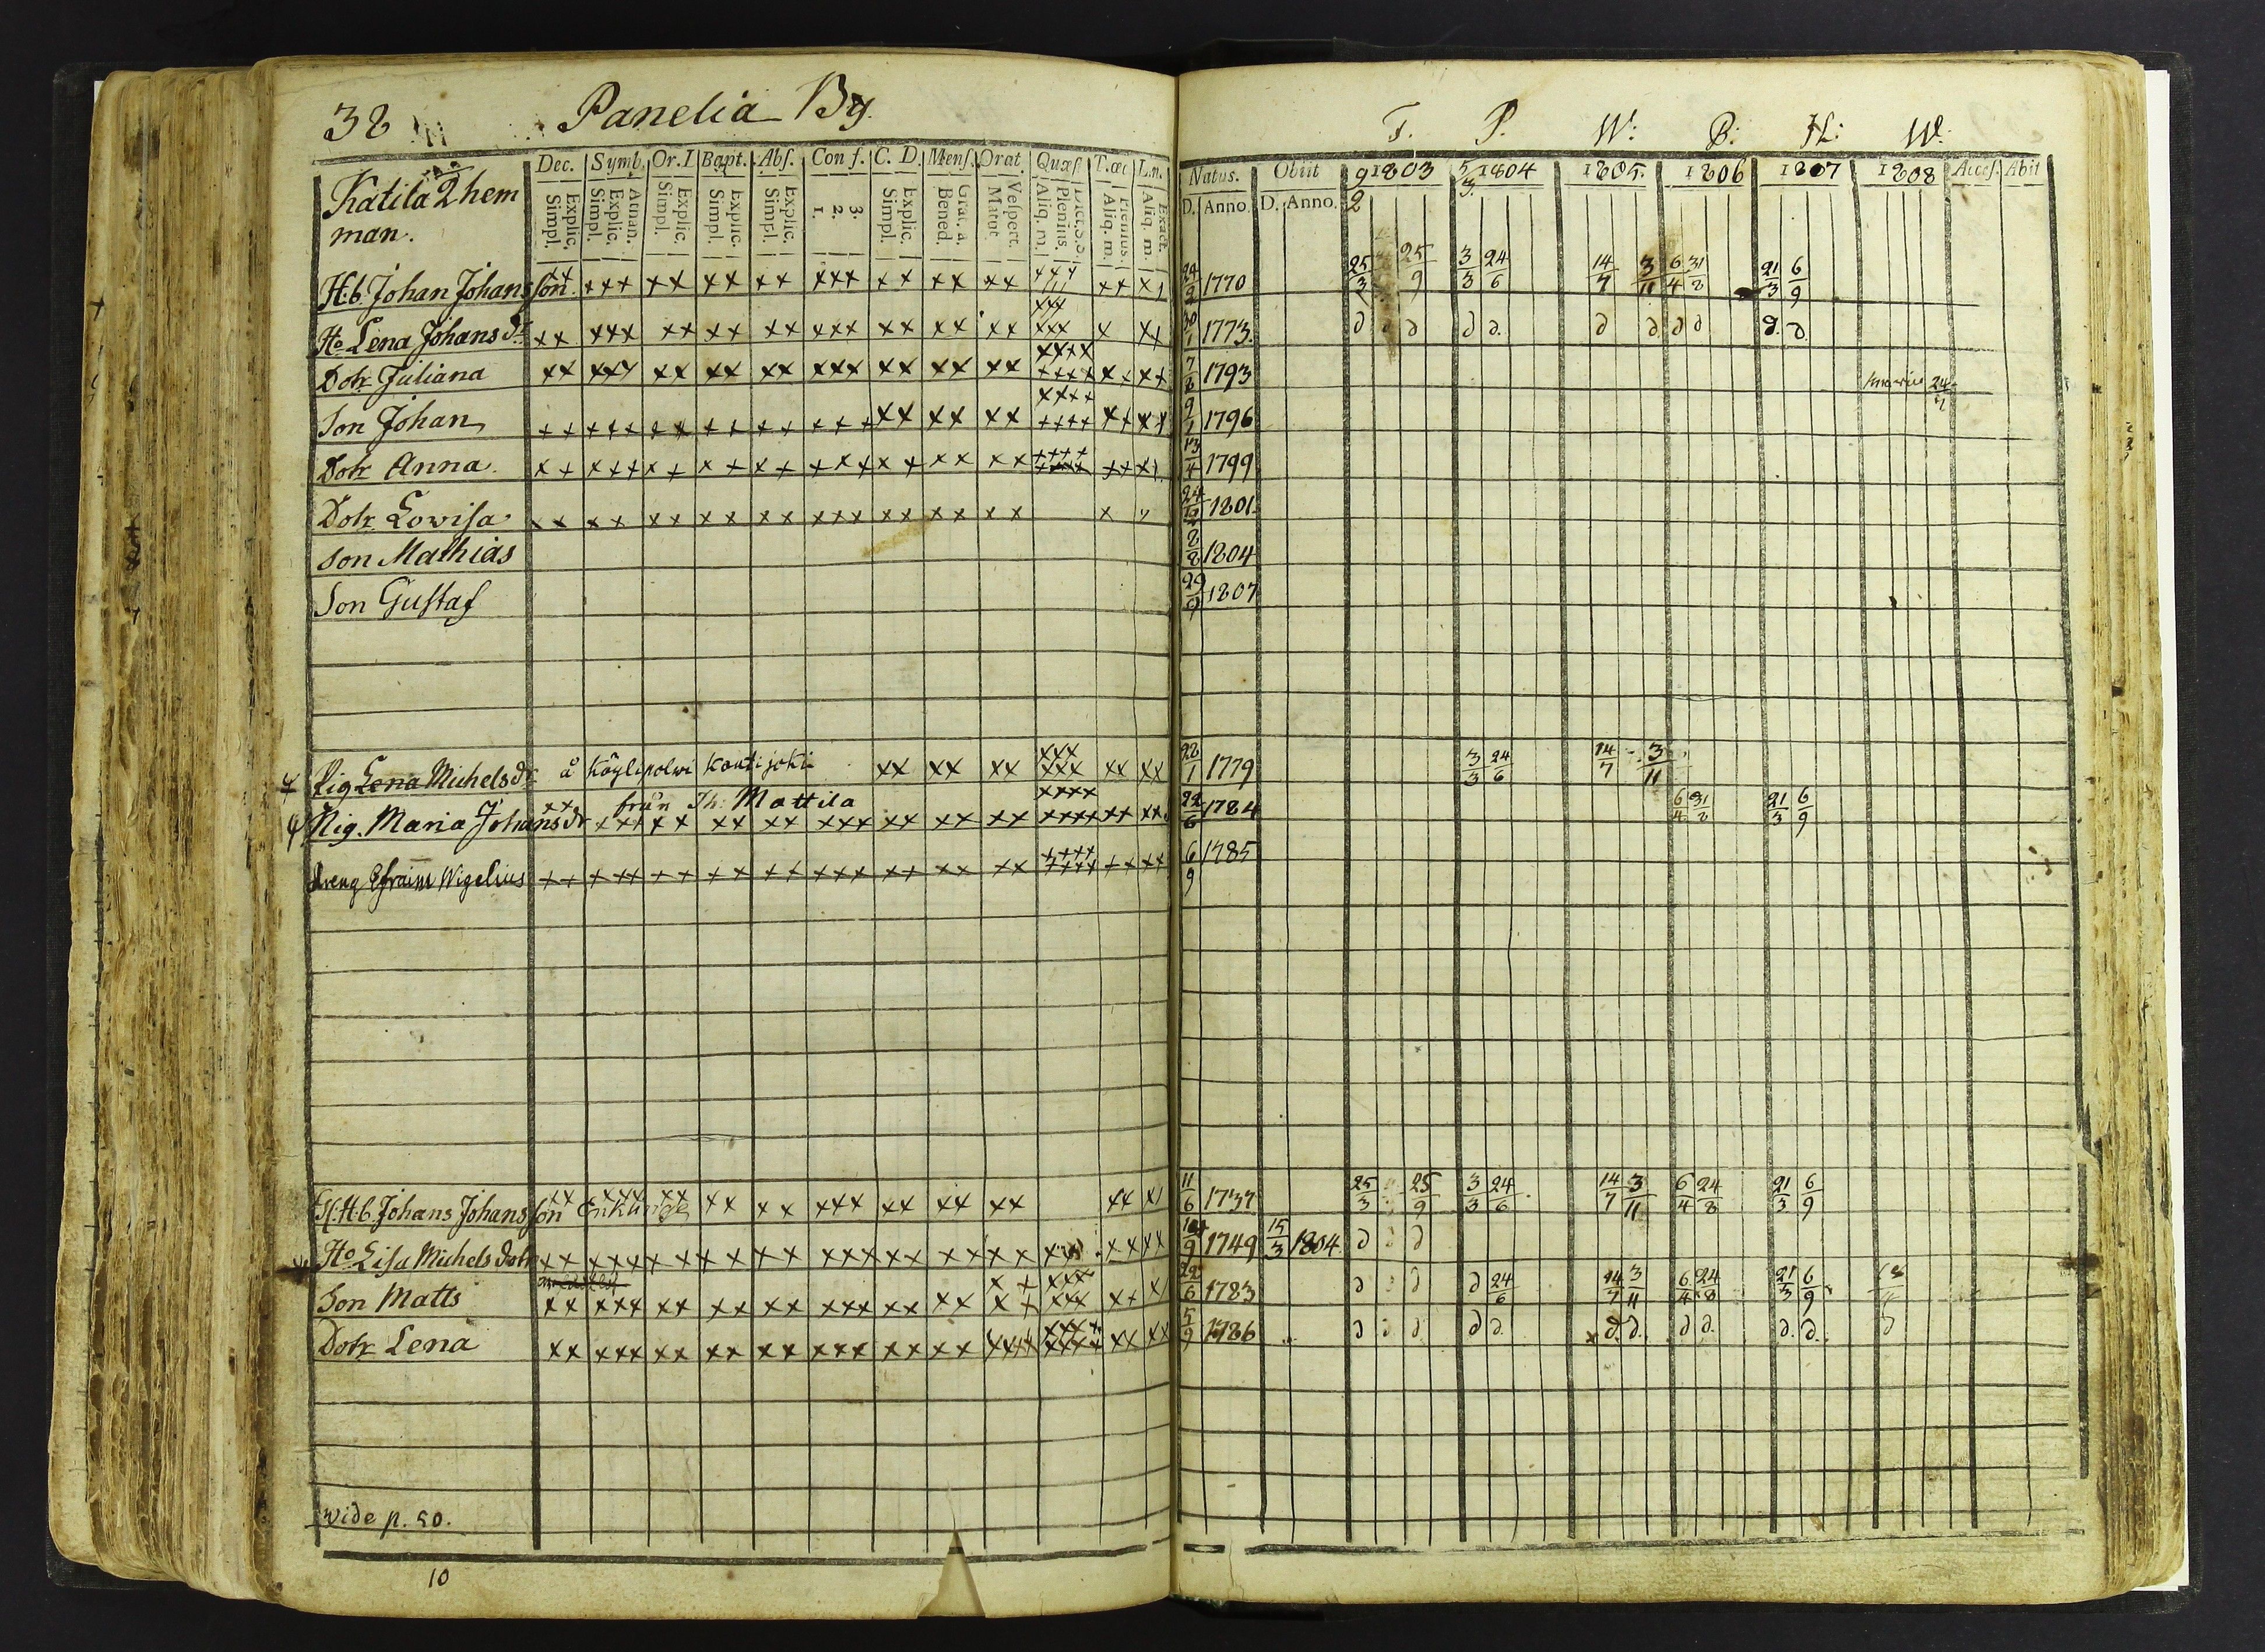 38 Panelia By.
T. P. W: B: H: W.
Dec. Symb. Or. D Bapt. Abſ. Conf. C. D. Menſ. Orat. Quæſ T.œc L.n.
Natus. Obiit 1803 1804 1805. 1806 1807 1808 Acceſ. Abiit
Explic. Simpl. Athan. Explic. Simpl. Explic. Simpl. Explic. Simpl. Explic. Simpl. 3. 2. 1. Explic. Simpl. Grat. a. Bened. Veſpert. Matut. Dict. S. S. Plenius. Aliq. m. Plenius. Aliq. m. Exact. Aliq. m.
D. Anno. D. Anno. 9/2 5/3.
Katila 2 hem
man.
H.b. Johan Johansſon xx xxx xx xx xx xxx xx xx xx xx xx 24/2 1770 25/3 25/9 3/3 24/6 14/7 3/11 6/4 31/8 21/3 6/9
Ho Lena Johans dr xx xxx xx xx xx xxx xx xx xx xxx xxx x xx 30/1 1773. d d d d d. d d. d d d. d.
Dotr Juliana xx xxx xx xx xx xxx xx xx xx xxxx xxxx xx xx 7/8 1793 24
Son Johan xx xxx xx xx xx xxx xx xx xx xxxx xxxx xx xx 9/1 1796
Dotr Anna. xx xxx xx xx xx xxx xx xx xx xxxx xxxx xx xx 13/4 1799
Dotr Lovisa xx xx xx xx xx xxx xx xx xx x 1801.
Son Mathias 8/8 1804
Son Gustaf 29/9 1807
Pig Lena Michels dr å Köylipolwi Kontijoki xx xx xx xxx xxx xx xx 1779 3/3 24/6 14/7 3/11
Pig. Maria Johans dr från Mattila xx xxx xx xx xx xxx xx xx xx xxxx xxxx xx xx 22/6 1784 6/4 31/8 21/3 6/9
dreng Efraim Wigelius xx xxx xx xx xx xxx xx xx xx xxxx xxxx xx xx 6/9 1785
H.b. Johans Johansſon Enkling xx xxx xx xx xx xxx xx xx xx xx 11/6 1737 25/3 25/9 3/3 24/6 14/7 3/11 6/4 24/8 21/3 6/9
Ho Lisa Michels dotr xx xxx xx xx xx xxx xx xx xx xx xx 1749 15/3 1804. d d d
Son Matts xx xxx xx xx xx xxx xx xx xx xxx xxx xx 22/6 1783 d d d d 24/6 14/7 3/11 6/4 24/8 21/3 6/9
Dotr Lena xx xxx xx xx xx xxx xx xx xxxx xxxx xxxx xx xx 5/9 1786 d d d. d d. d. d. d d. d. d. d
wide p. 50.
10